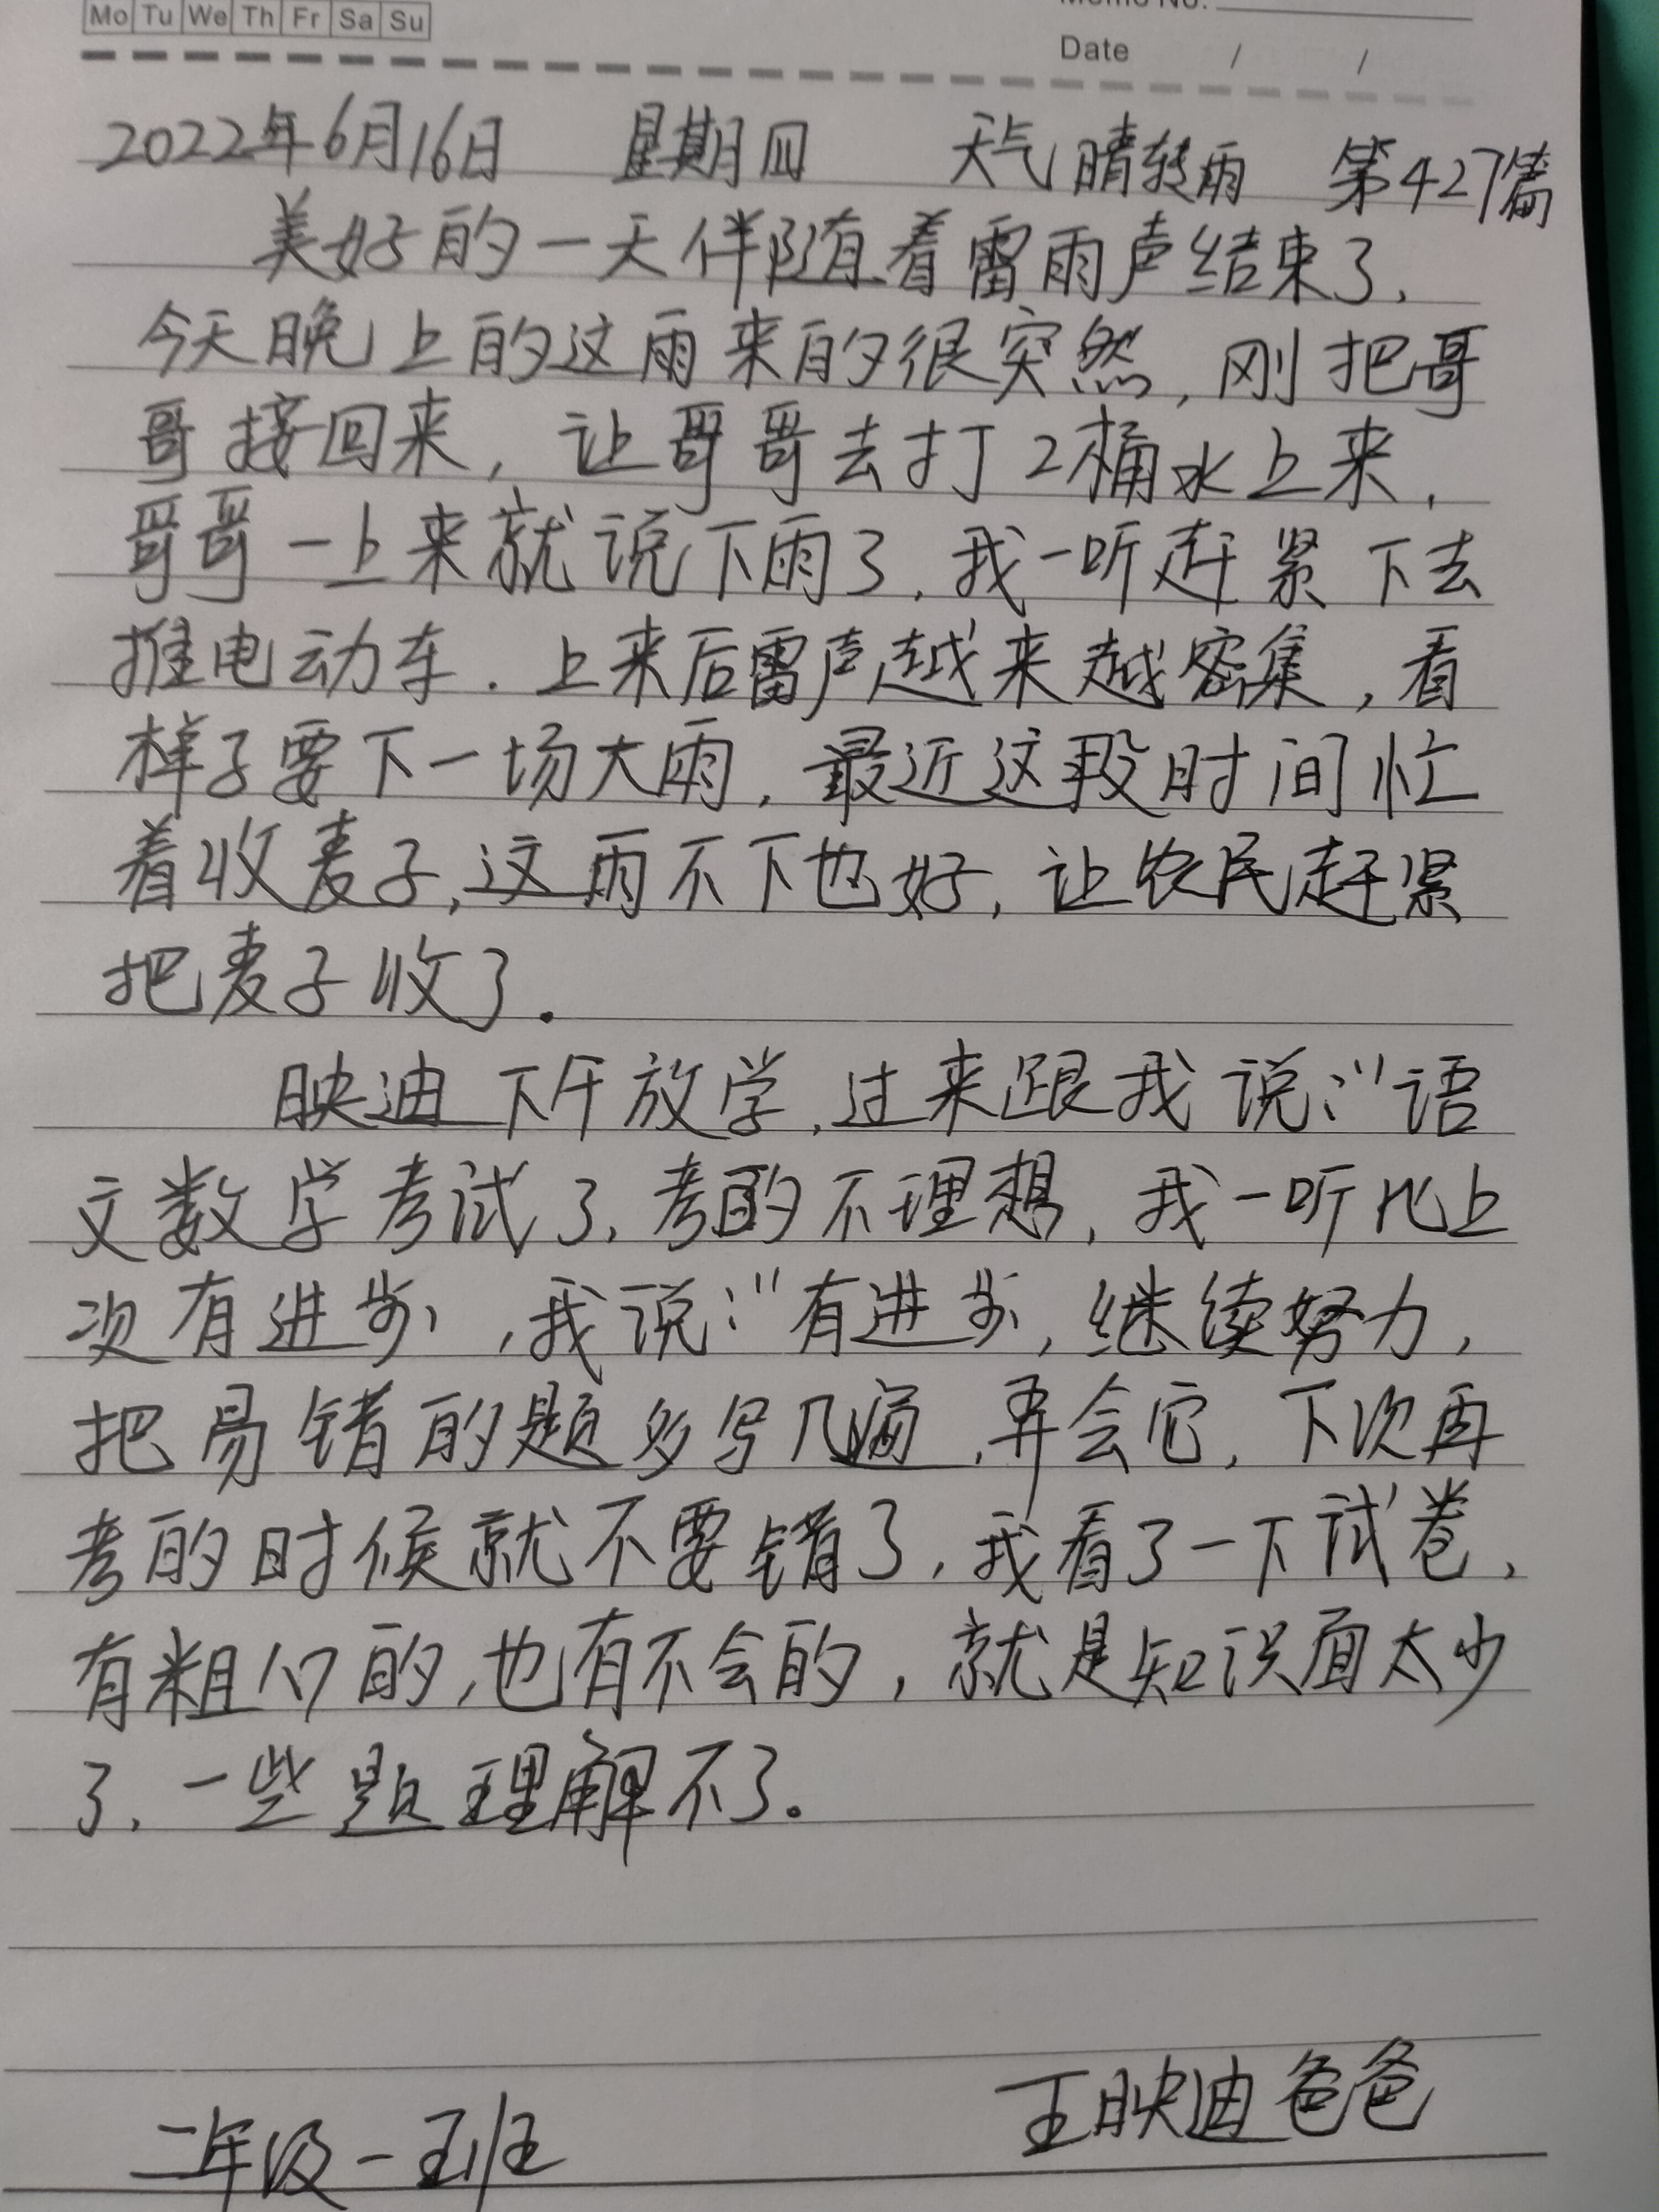 Mo Tu We Th Fr Sa Su
Memo No.
Date / /
2022年6月16日 星期四 天气晴转雨 第427篇
美好的一天伴随着雷雨声结束了,
今天晚上的这雨来的很突然,刚把哥
哥接回来,让哥哥去打2桶水上来,
哥哥一上来就说下雨了,我一听赶紧下去
推电动车.上来后雷声越来越密集,看
样子要下一场大雨,最近这段时间忙
着收麦子,这雨不下也好,让农民赶紧
把麦子收了.
映迪下午放学,过来跟我说:“语
文数学考试了,考的不理想,我一听比上
次有进步,我说:“有进步,继续努力,
把易错的题多写几遍,弄会它,下次再
考的时候就不要错了,我看了一下试卷,
有粗心的,也有不会的,就是知识面太少
了,一些题理解不了。
二年级一班 王映迪爸爸